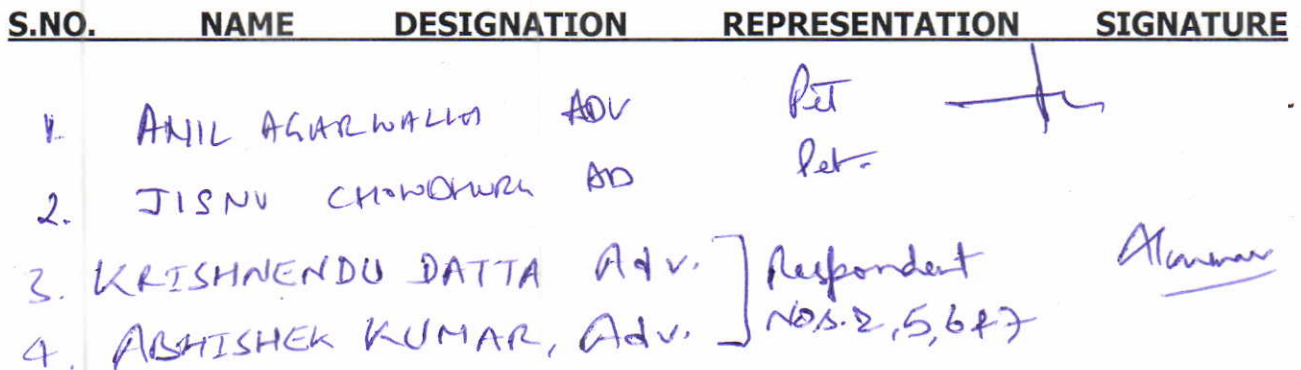 S.NO. NAME DESIGNATION REPRESENTATION SIGNATURE
1. ANIL AGARWALLA ADV Pet
2. JISNU CHOWDHURY AD Pet.
3. KRISHNENDU DATTA Adv. Respondent
4. ABHISHEK KUMAR, Adv. Nos. 2, 5, 6 & 7